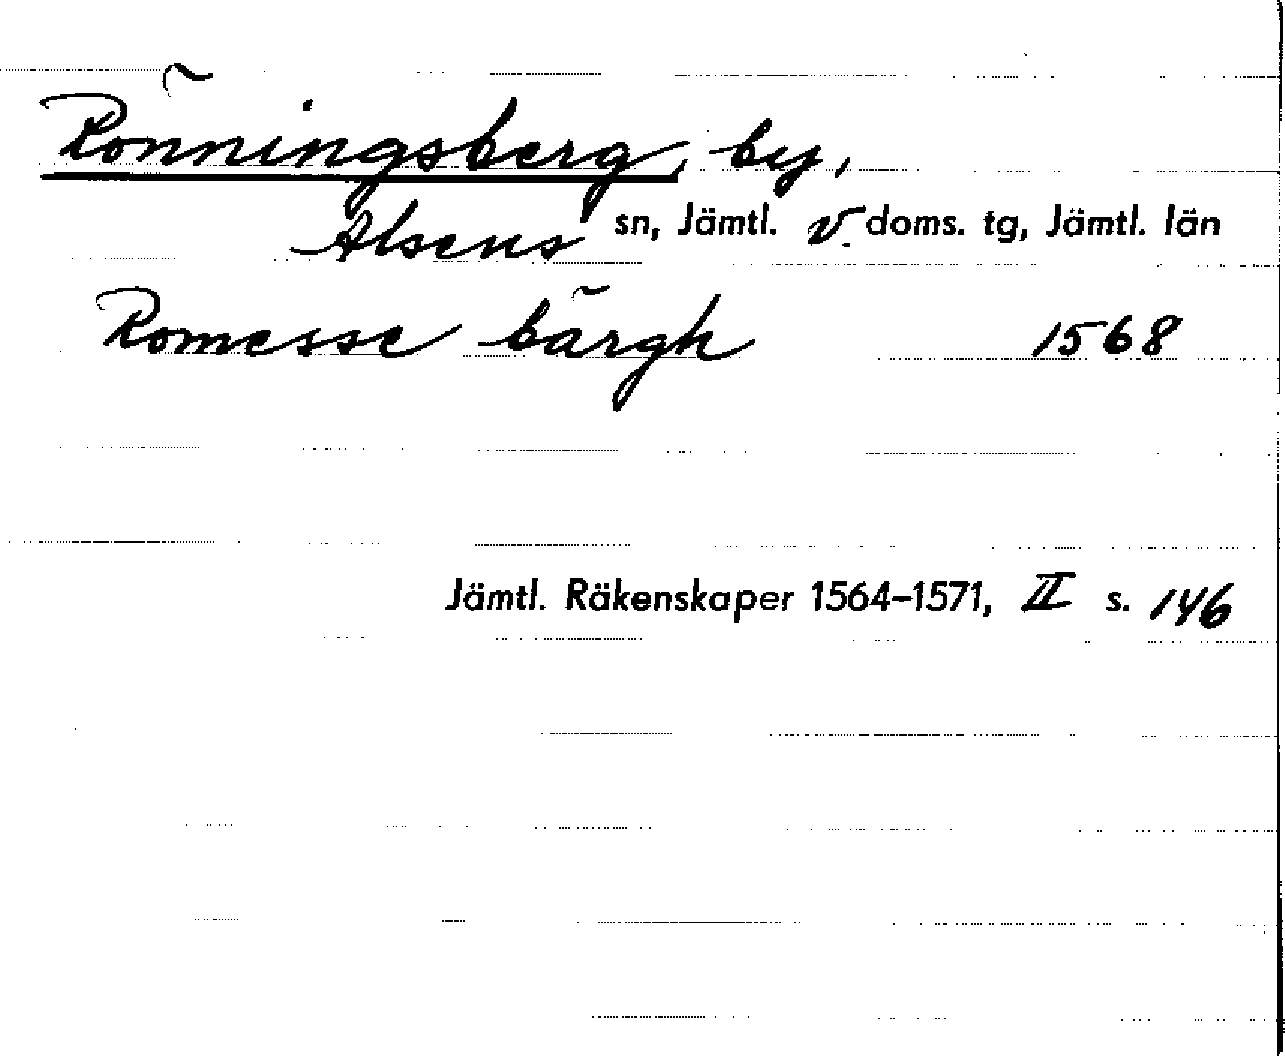 Rönningsberg, by,
Alsens sn, Jämtl. v. doms. tg, Jämtl. län
Romesse bärgh 1568
Jämtl. Räkenskaper 1564-1571, II s. 146